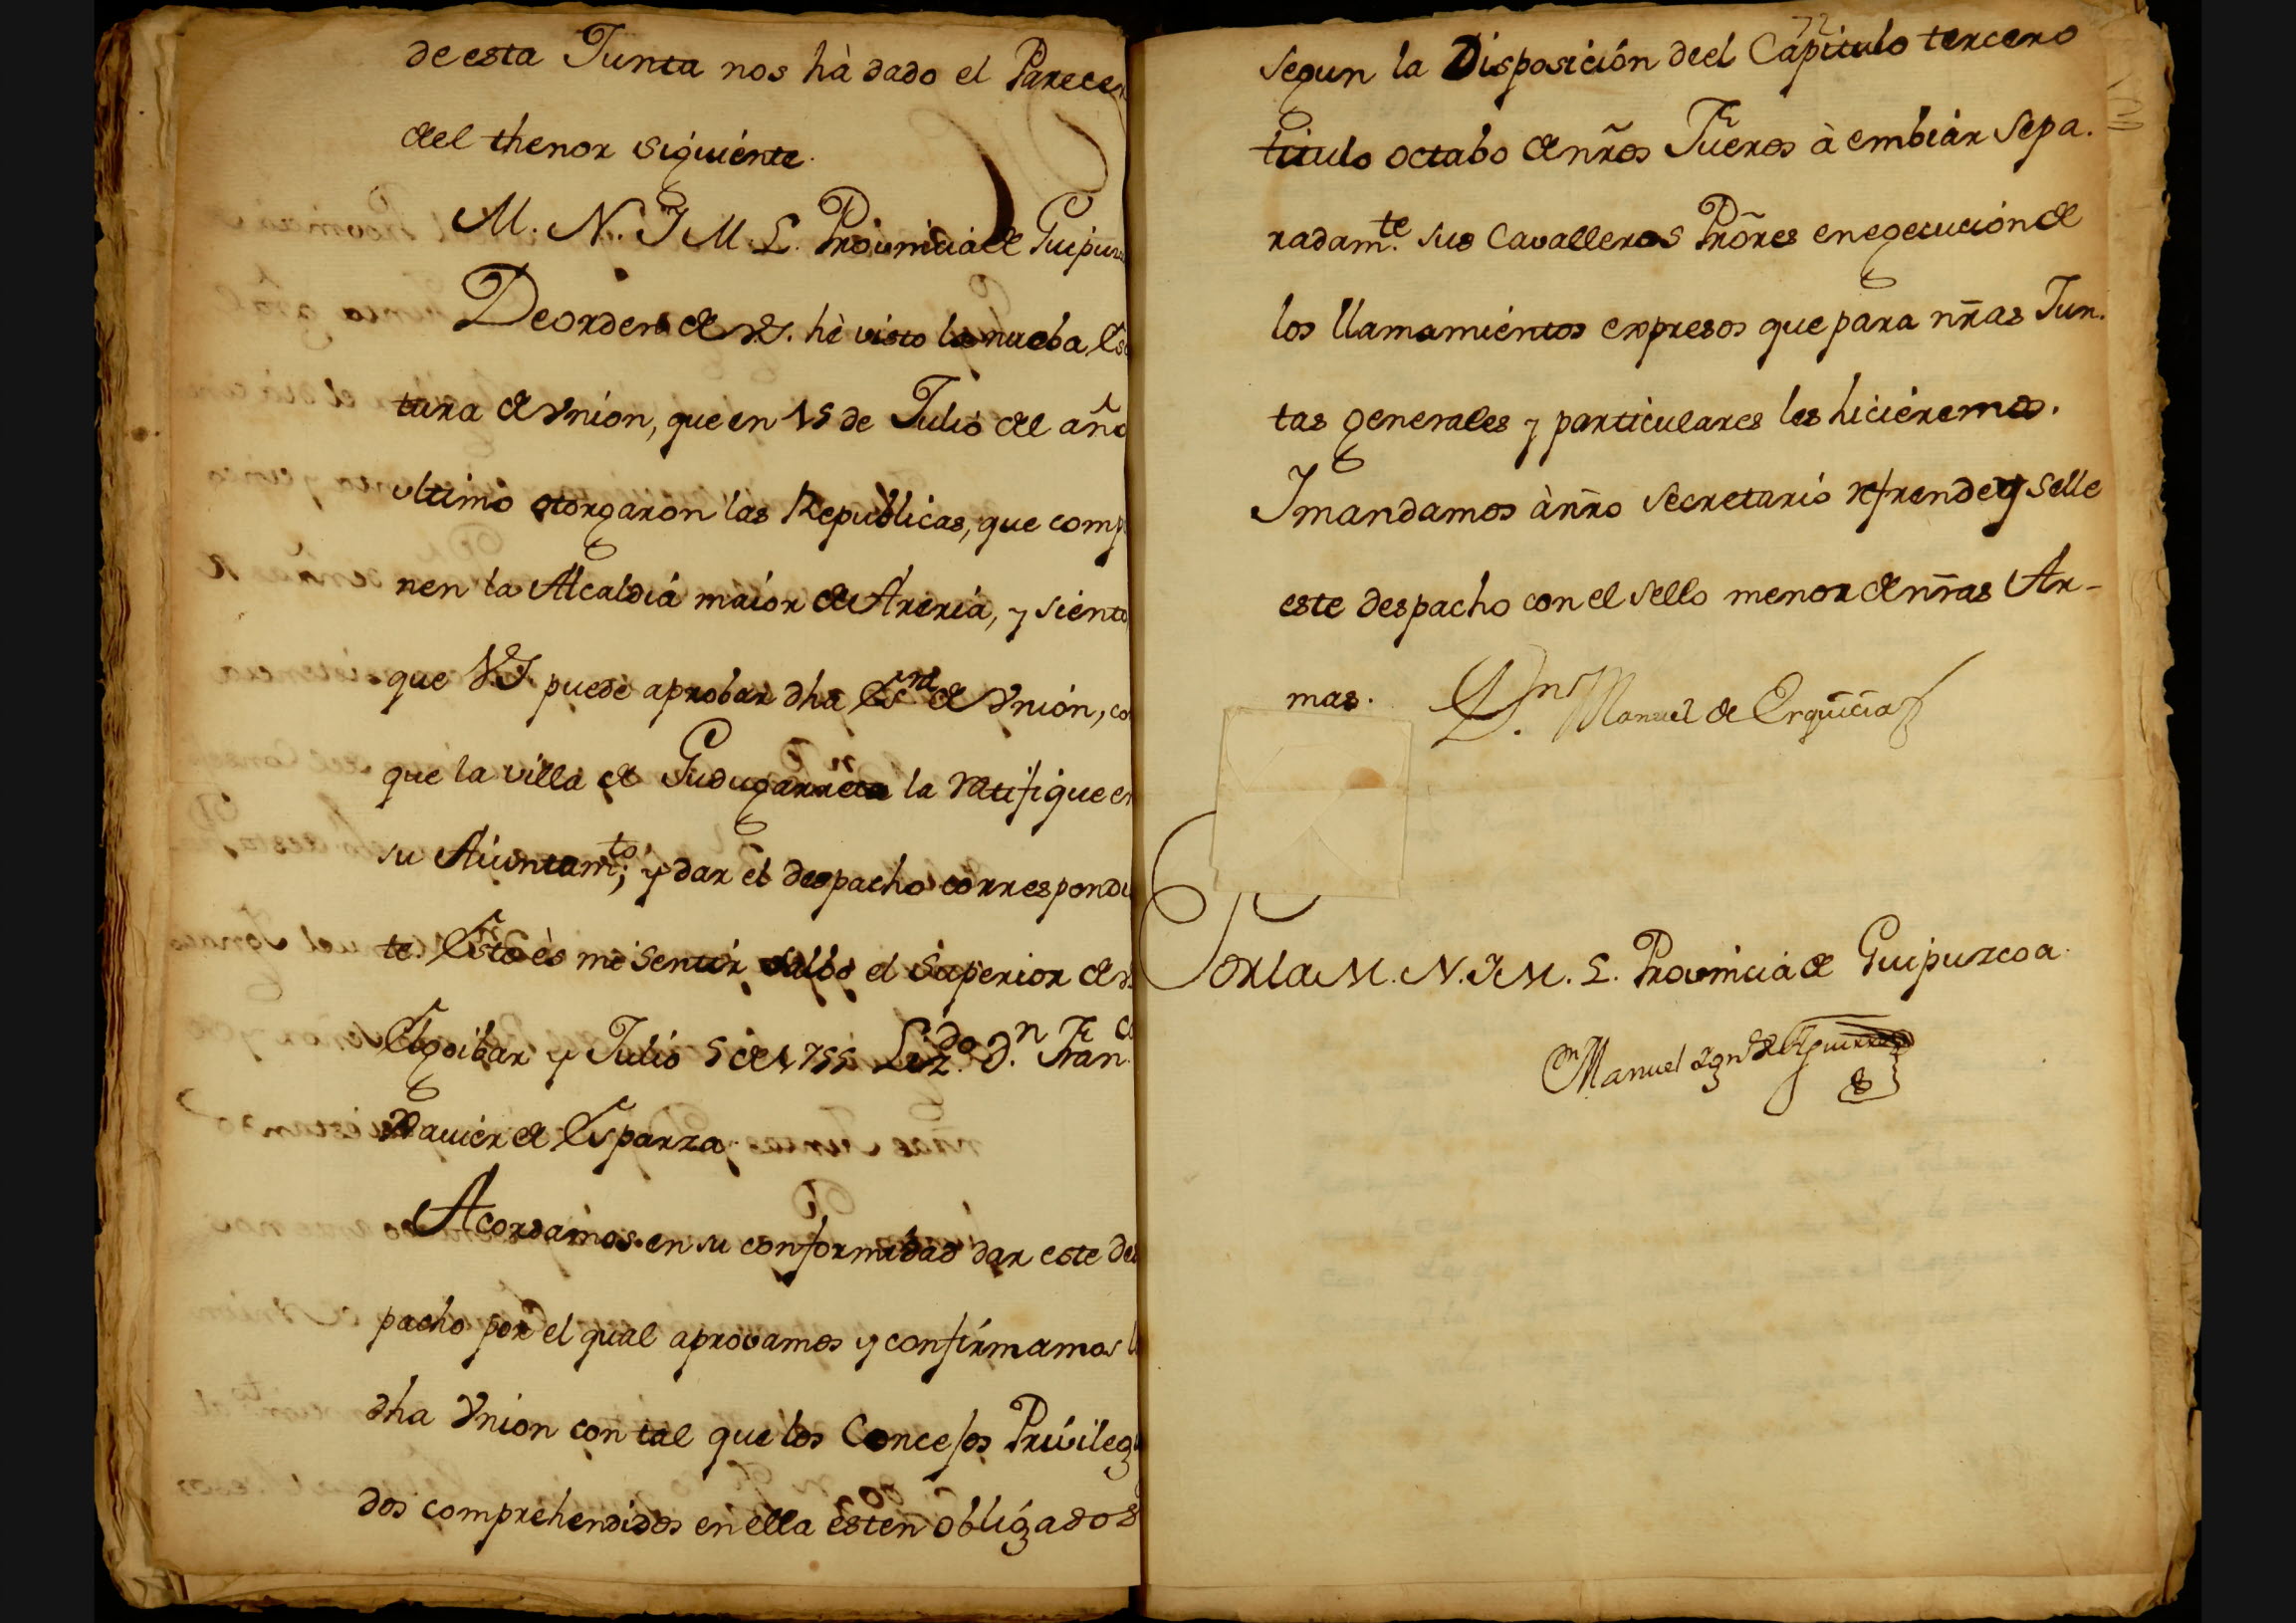 de esta Junta nos hà dado el Parecer
del thenor siguiente.
M. N. I M. L. Provincia de Guipuz
De orden de V.S. hè visto la nueba Es
tura de Vnion, que en 15 de Julio del año
ultimo otorgaron las Republicas, que comp
nen la Alcaldia maior de Areria, y siento
que V.S. puede aprobar dha Escra de Vnión, co
que la villa de Gudugarreta la ratifique en
su Aiuntamto; y dar el despacho correspondi
te. Esto ès mi sentir salbo el superior de V.
Elgoibar y Julio 5 de 1755. Lizdo. Dn. Franco
Xavier de Esparza.
Acordamos en su conformidad dar este des
pacho por el qual aprovamos y confirmamos l
dha Vnion con tal que los Concejos Privilegi
dos comprehendidos en ella esten obligados
72
segun la Disposición deel Capitulo tercero
titulo octabo de nr̃os Fueros à embiar sepa.
radamte. sus Cavalleros Prõres en egecución de
los llamamientos expresos que para nr̃as Jun.
tas generales y particulares les hicieremos.
I mandamos à nr̃o secretario refrende y selle
este despacho con el sello menor de nr̃as Ar-
mas. Dn. Manuel de Erquicia
Por la M. N. I M. L. Provincia de Guipuzcoa.
Dn Manuel Ign de Aguirre